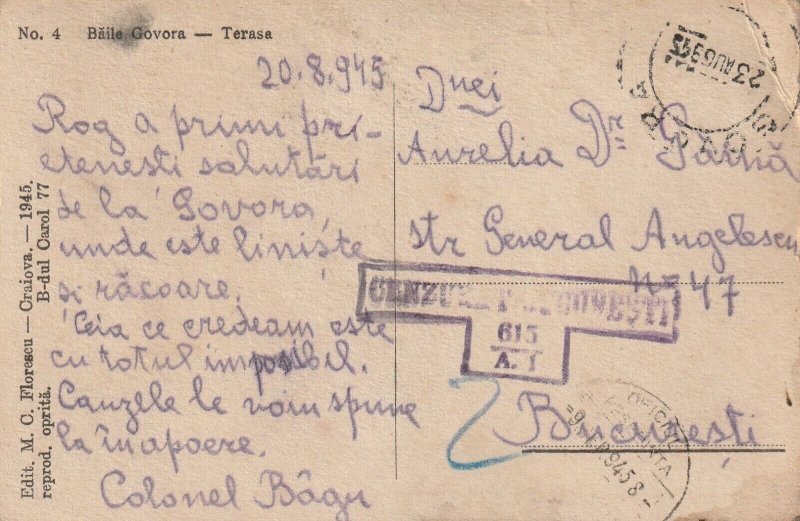 No. 4 Băile Govora — Terasa
20.8.945
Rog a primi pri-
etenești salutări
de la Govora,
unde este liniște
și răcoare.
Ceia ce credeam este
cu totul imposibil.
Cauzele le voiu spune
la înapoere.
Colonel Bâgu
Dnei
Aurelia Dr.
str General Angelescu
No 47
București
23 AUG 945
CENZURAT
615
A. I
2
OFICIUL
Edit. M. C. Florescu — Craiova. — 1945.
reprod. oprită. B-dul Carol 77